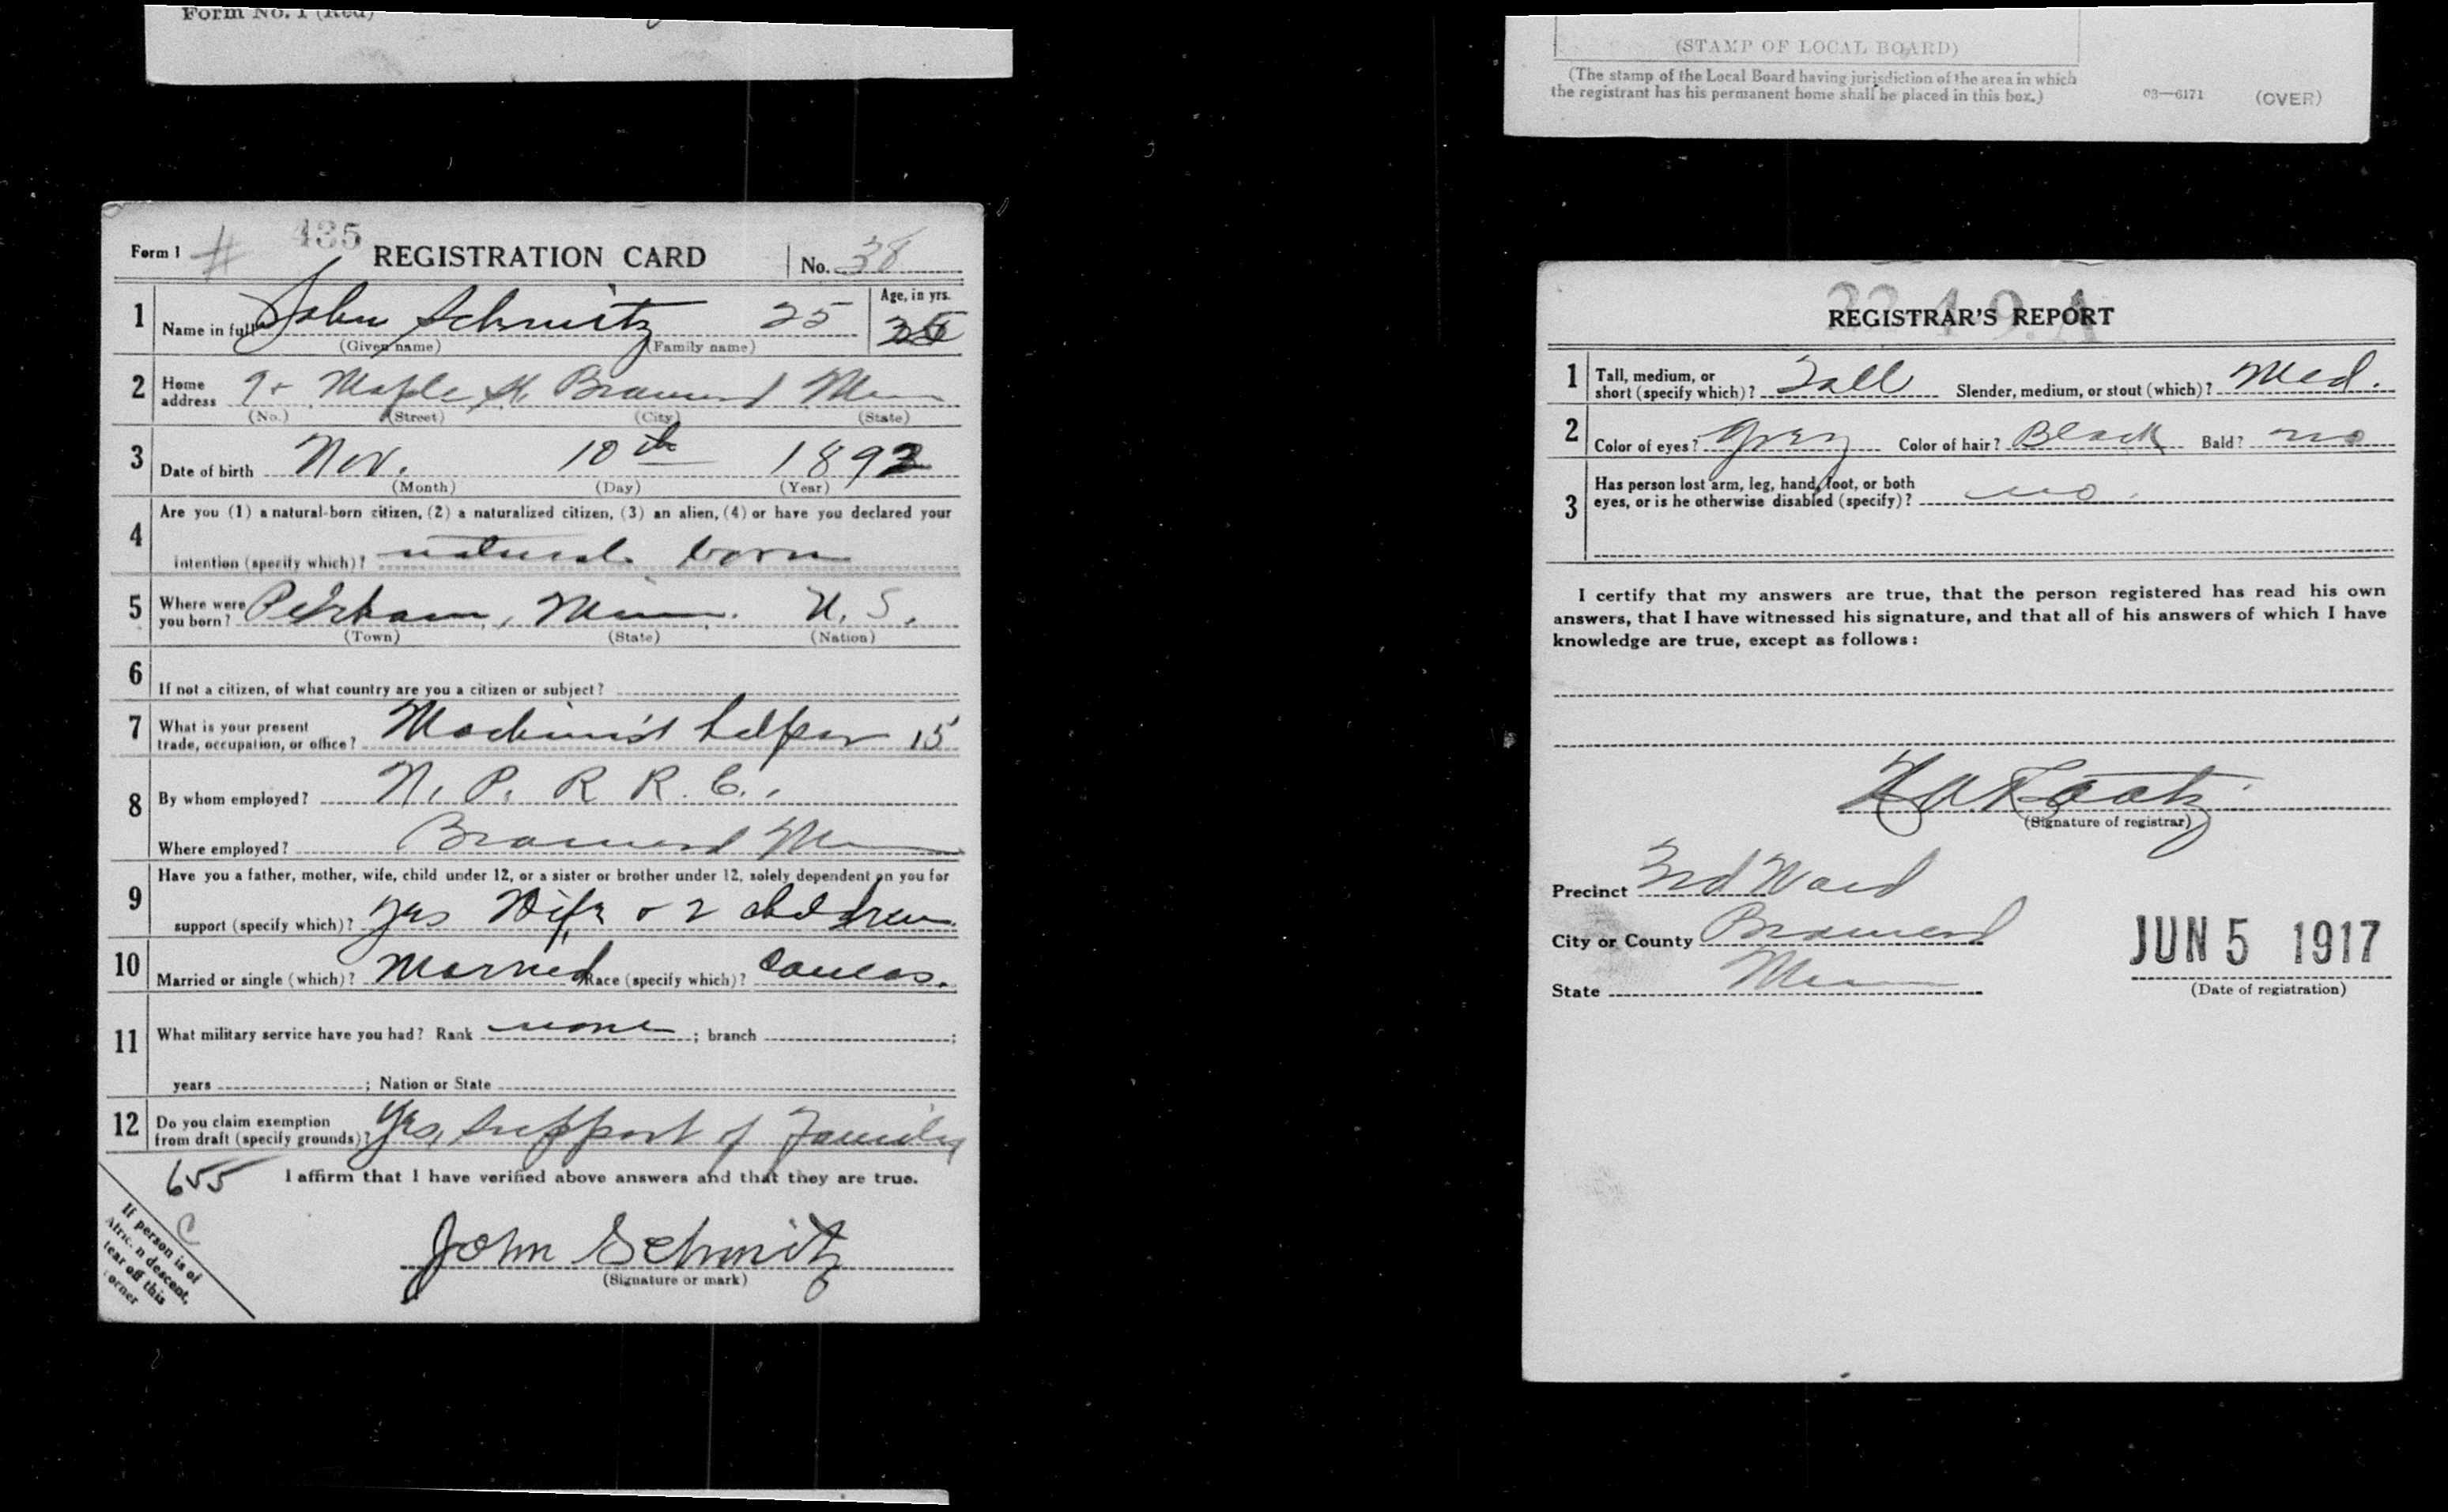 Form No. 1 (Red)
Form 1 # 435 REGISTRATION CARD No. 38
1 Name in full John Schmitz 25 Age, in yrs.
(Given name) (Family name)
2 Home address Maple St. Brainerd Minn
(No.) (Street) (City) (State)
3 Date of birth Nov. 10th 1892
(Month) (Day) (Year)
4 Are you (1) a natural-born citizen, (2) a naturalized citizen, (3) an alien, (4) or have you declared your
intention (specify which)? natural born
5 Where were you born? Perham, Minn. U. S.
(Town) (State) (Nation)
6 If not a citizen, of what country are you a citizen or subject?
7 What is your present
trade, occupation, or office? Machinist helper 15
8 By whom employed? N. P. R R. C.
Where employed? Brainerd Minn
9 Have you a father, mother, wife, child under 12, or a sister or brother under 12, solely dependent on you for
support (specify which)? yes Wife & 2 children
10 Married or single (which)? Married Race (specify which)? Caucas.
11 What military service have you had? Rank none ; branch ;
years ; Nation or State
12 Do you claim exemption
from draft (specify grounds)? Yes, support of Family
655 I affirm that I have verified above answers and that they are true.
C
If person is of
African descent,
tear off this
corner
John Schmitz
(Signature or mark)
(STAMP OF LOCAL BOARD)
(The stamp of the Local Board having jurisdiction of the area in which
the registrant has his permanent home shall be placed in this box.) 03—6171 (OVER)
REGISTRAR'S REPORT
1 Tall, medium, or
short (specify which)? Tall Slender, medium, or stout (which)? Med.
2 Color of eyes? Grey Color of hair? Black Bald? no
3 Has person lost arm, leg, hand, foot, or both
eyes, or is he otherwise disabled (specify)? no.
I certify that my answers are true, that the person registered has read his own
answers, that I have witnessed his signature, and that all of his answers of which I have
knowledge are true, except as follows:
(Signature of registrar)
Precinct 3rd Ward
City or County Brainerd
State Minn
JUN 5 1917
(Date of registration)